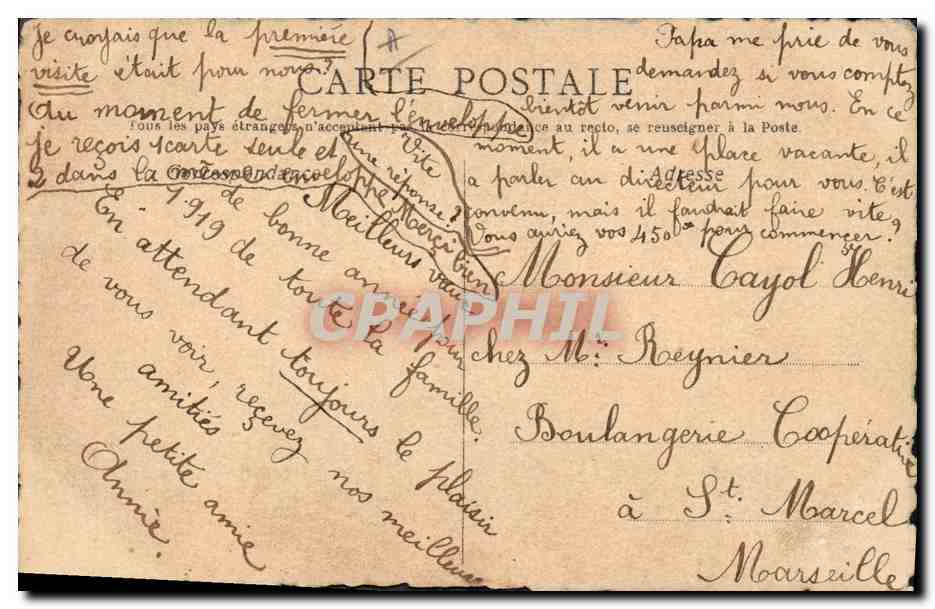 Je croyais que la première
visite était pour nous?
Au moment de fermer l'enveloppe
je reçois 1 carte seule et
2 dans la même enveloppe. Merci bien
une réponse?
Vite
CARTE POSTALE
Tous les pays étrangers n'acceptent pas la correspondance au recto, se renseigner à la Poste.
Correspondance
Adresse
Meilleurs vœux
de bonne année pour
1919 de toute la famille.
En attendant toujours le plaisir
de vous voir, reçevez nos meilleures
amitiés
Une petite amie
Annie.
Papa me prie de vous
demandez si vous comptez
bientôt venir parmi nous. En ce
moment, il y a une place vacante, il
a parler au directeur pour vous. C'est
convenu, mais il faudrait faire vite?
Vous auriez vos 450 pour commencer.
Monsieur Cayol Henri
chez Mr. Reynier
Boulangerie Coopérative
à St. Marcel
Marseille
CPAPHIL